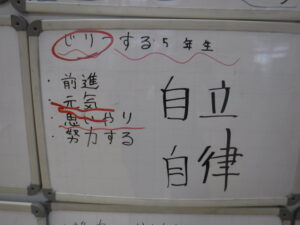 じりつする5年生
・前進
・元気
・思いやり
・努力する
自立
自律